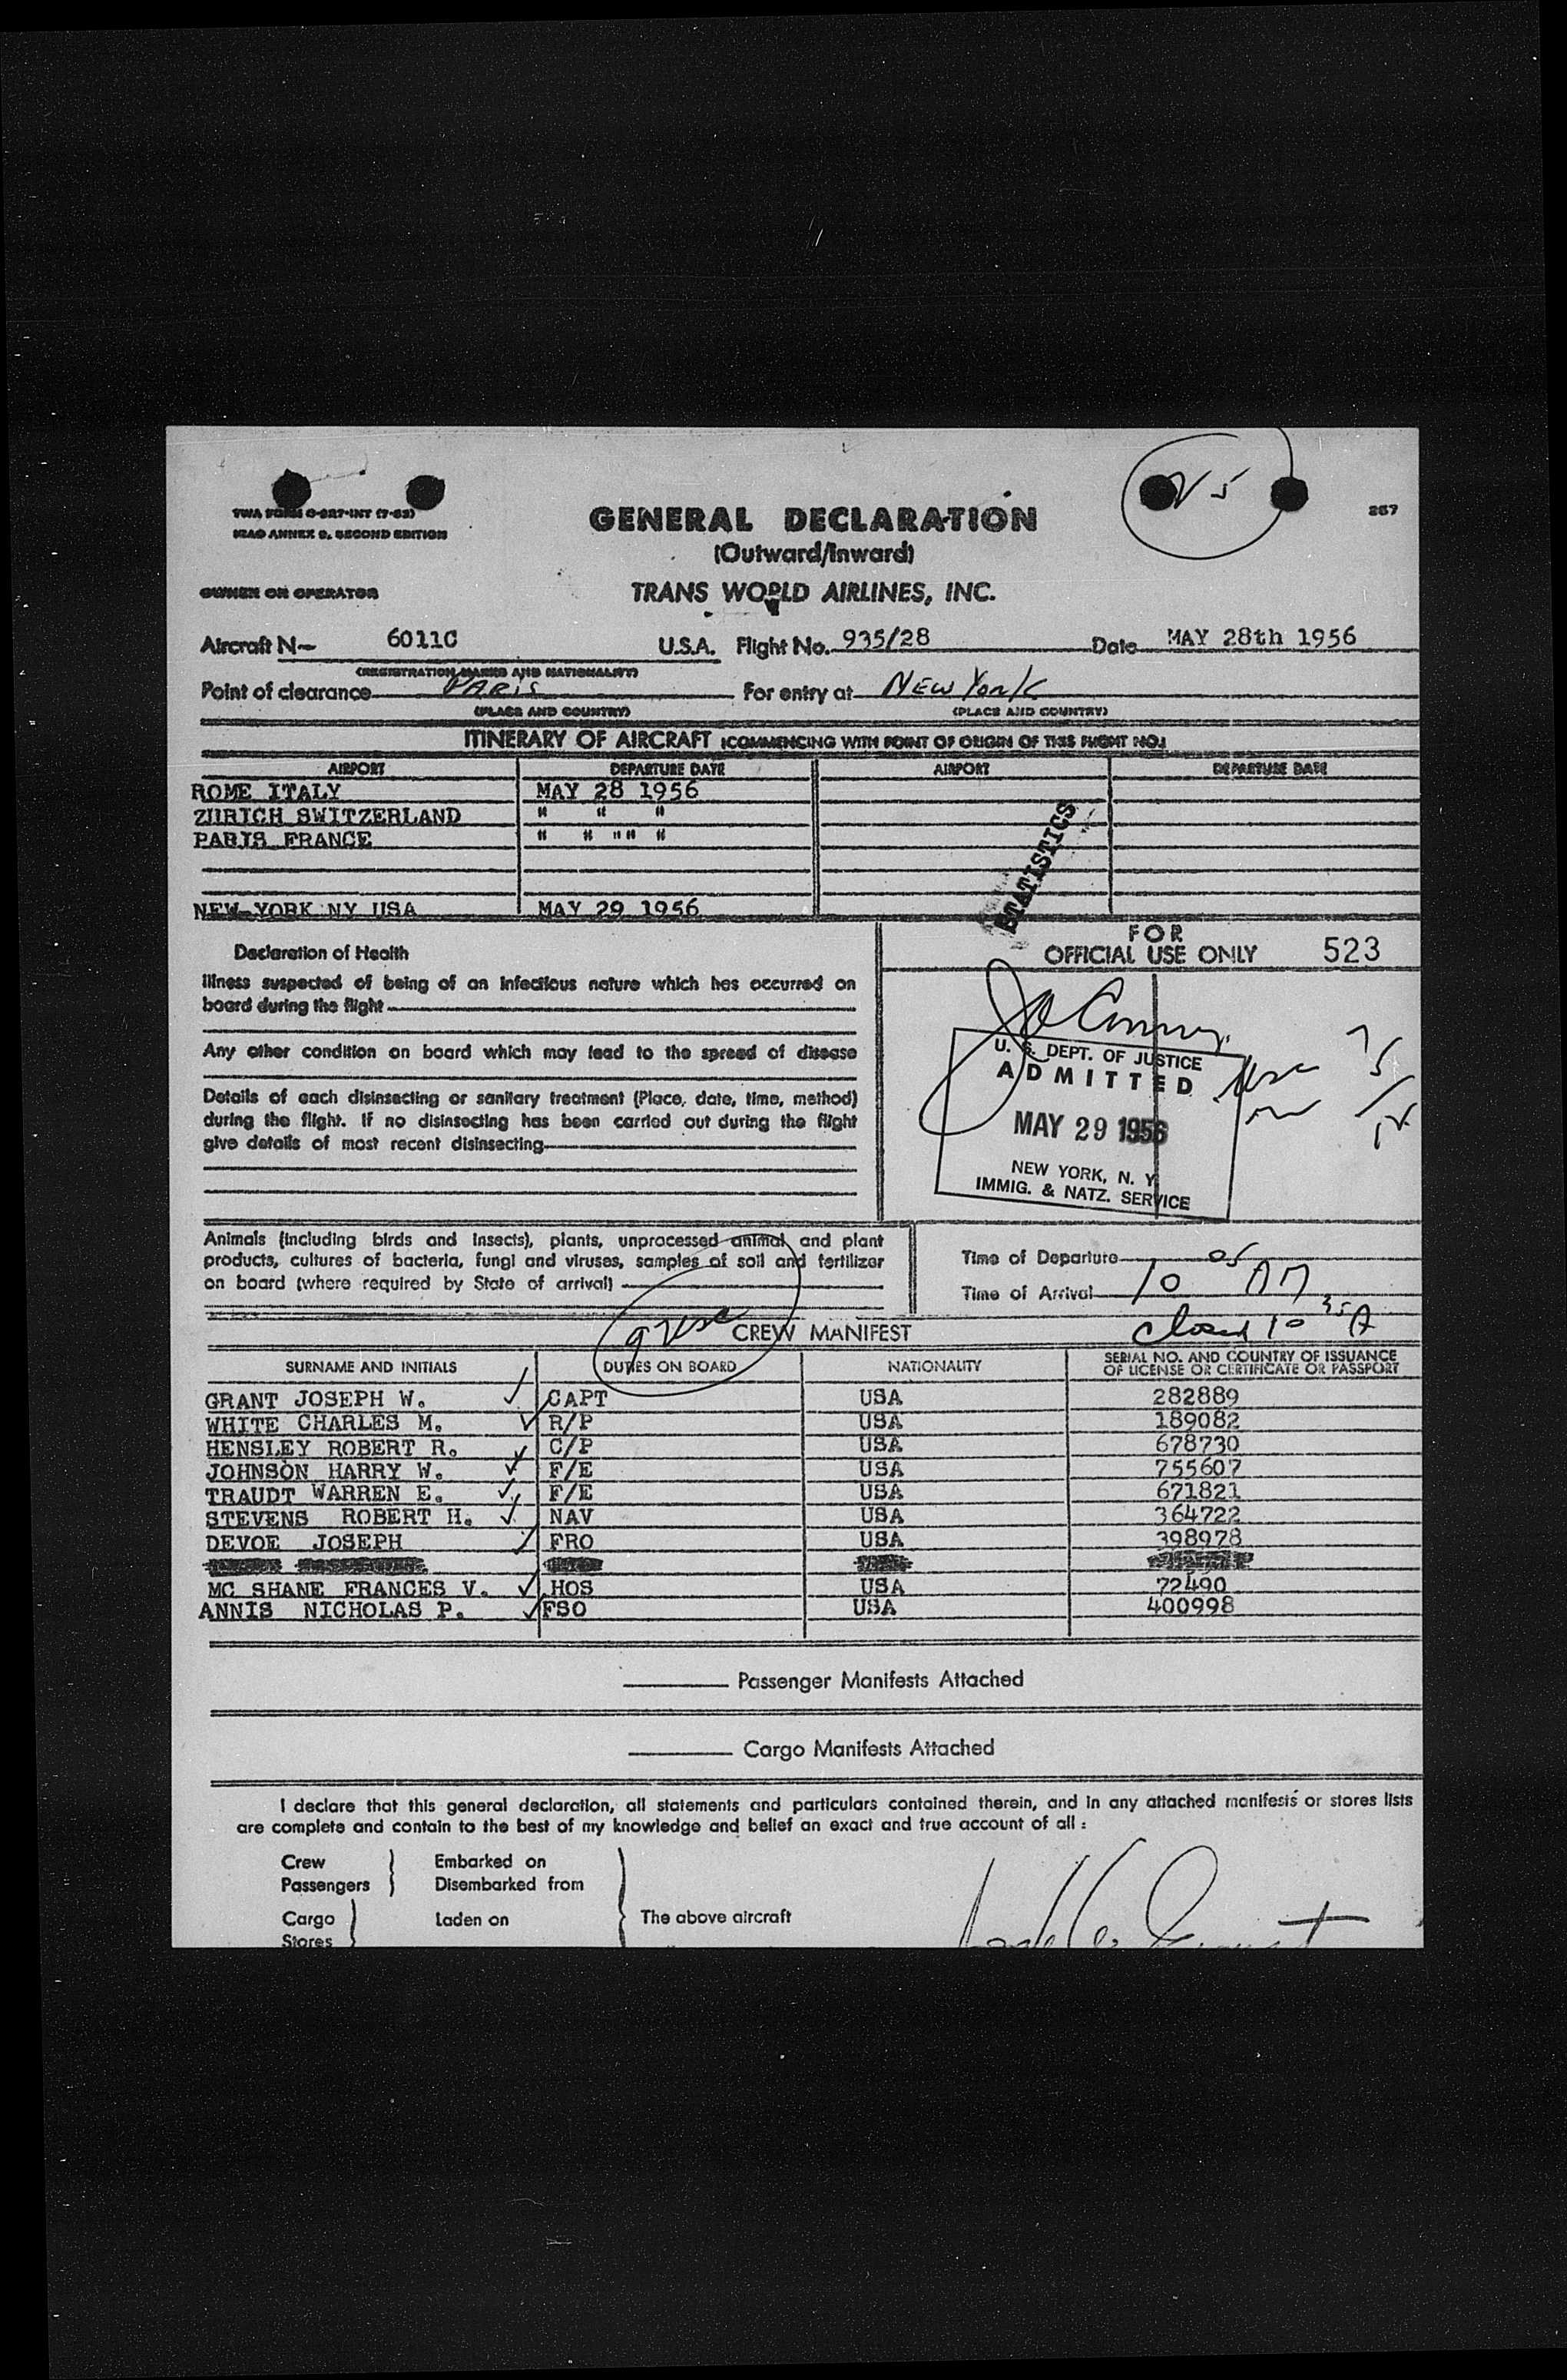 TWA FORM O-827-INT (7-53)
ICAO ANNEX 9, SECOND EDITION
V 5
267
GENERAL DECLARATION
(Outward/Inward)
OWNER OR OPERATOR
TRANS WORLD AIRLINES, INC.
Aircraft N- 6011C U.S.A. Flight No. 935/28 Date MAY 28th 1956
(REGISTRATION MARKS AND NATIONALITY)
Point of clearance PARIS For entry at NEW YORK
(PLACE AND COUNTRY) (PLACE AND COUNTRY)
ITINERARY OF AIRCRAFT (COMMENCING WITH POINT OF ORIGIN OF THIS FLIGHT NO.)
AIRPORT DEPARTURE DATE AIRPORT DEPARTURE DATE
ROME ITALY MAY 28 1956
ZURICH SWITZERLAND " " "
PARIS FRANCE " " "" "
NEW YORK NY USA MAY 29 1956
STATISTICS
Declaration of Health
Illness suspected of being of an infectious nature which has occurred on
board during the flight
Any other condition on board which may lead to the spread of disease
Details of each disinsecting or sanitary treatment (Place, date, time, method)
during the flight. If no disinsecting has been carried out during the flight
give details of most recent disinsecting
FOR
OFFICIAL USE ONLY 523
U. S. DEPT. OF JUSTICE
ADMITTED
MAY 29 1956
NEW YORK, N. Y.
IMMIG. & NATZ. SERVICE
Animals (including birds and insects), plants, unprocessed animal and plant
products, cultures of bacteria, fungi and viruses, samples of soil and fertilizer
on board (where required by State of arrival)
Time of Departure
Time of Arrival 10 05 AM
closed 10 35 A
9 USC
CREW MANIFEST
SURNAME AND INITIALS DUTIES ON BOARD NATIONALITY SERIAL NO. AND COUNTRY OF ISSUANCE
OF LICENSE OR CERTIFICATE OR PASSPORT
GRANT JOSEPH W. CAPT USA 282889
WHITE CHARLES M. R/P USA 189082
HENSLEY ROBERT R. C/P USA 678730
JOHNSON HARRY W. F/E USA 755607
TRAUDT WARREN E. F/E USA 671821
STEVENS ROBERT H. NAV USA 364722
DEVOE JOSEPH FRO USA 398978
MC SHANE FRANCES V. HOS USA 72490
ANNIS NICHOLAS P. FSO USA 400998
Passenger Manifests Attached
Cargo Manifests Attached
I declare that this general declaration, all statements and particulars contained therein, and in any attached manifests or stores lists
are complete and contain to the best of my knowledge and belief an exact and true account of all :
Crew Embarked on
Passengers Disembarked from
Cargo Laden on The above aircraft
Stores